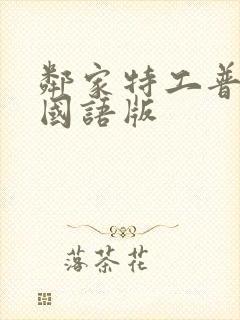 鄰家特工普
國語版
落茶花